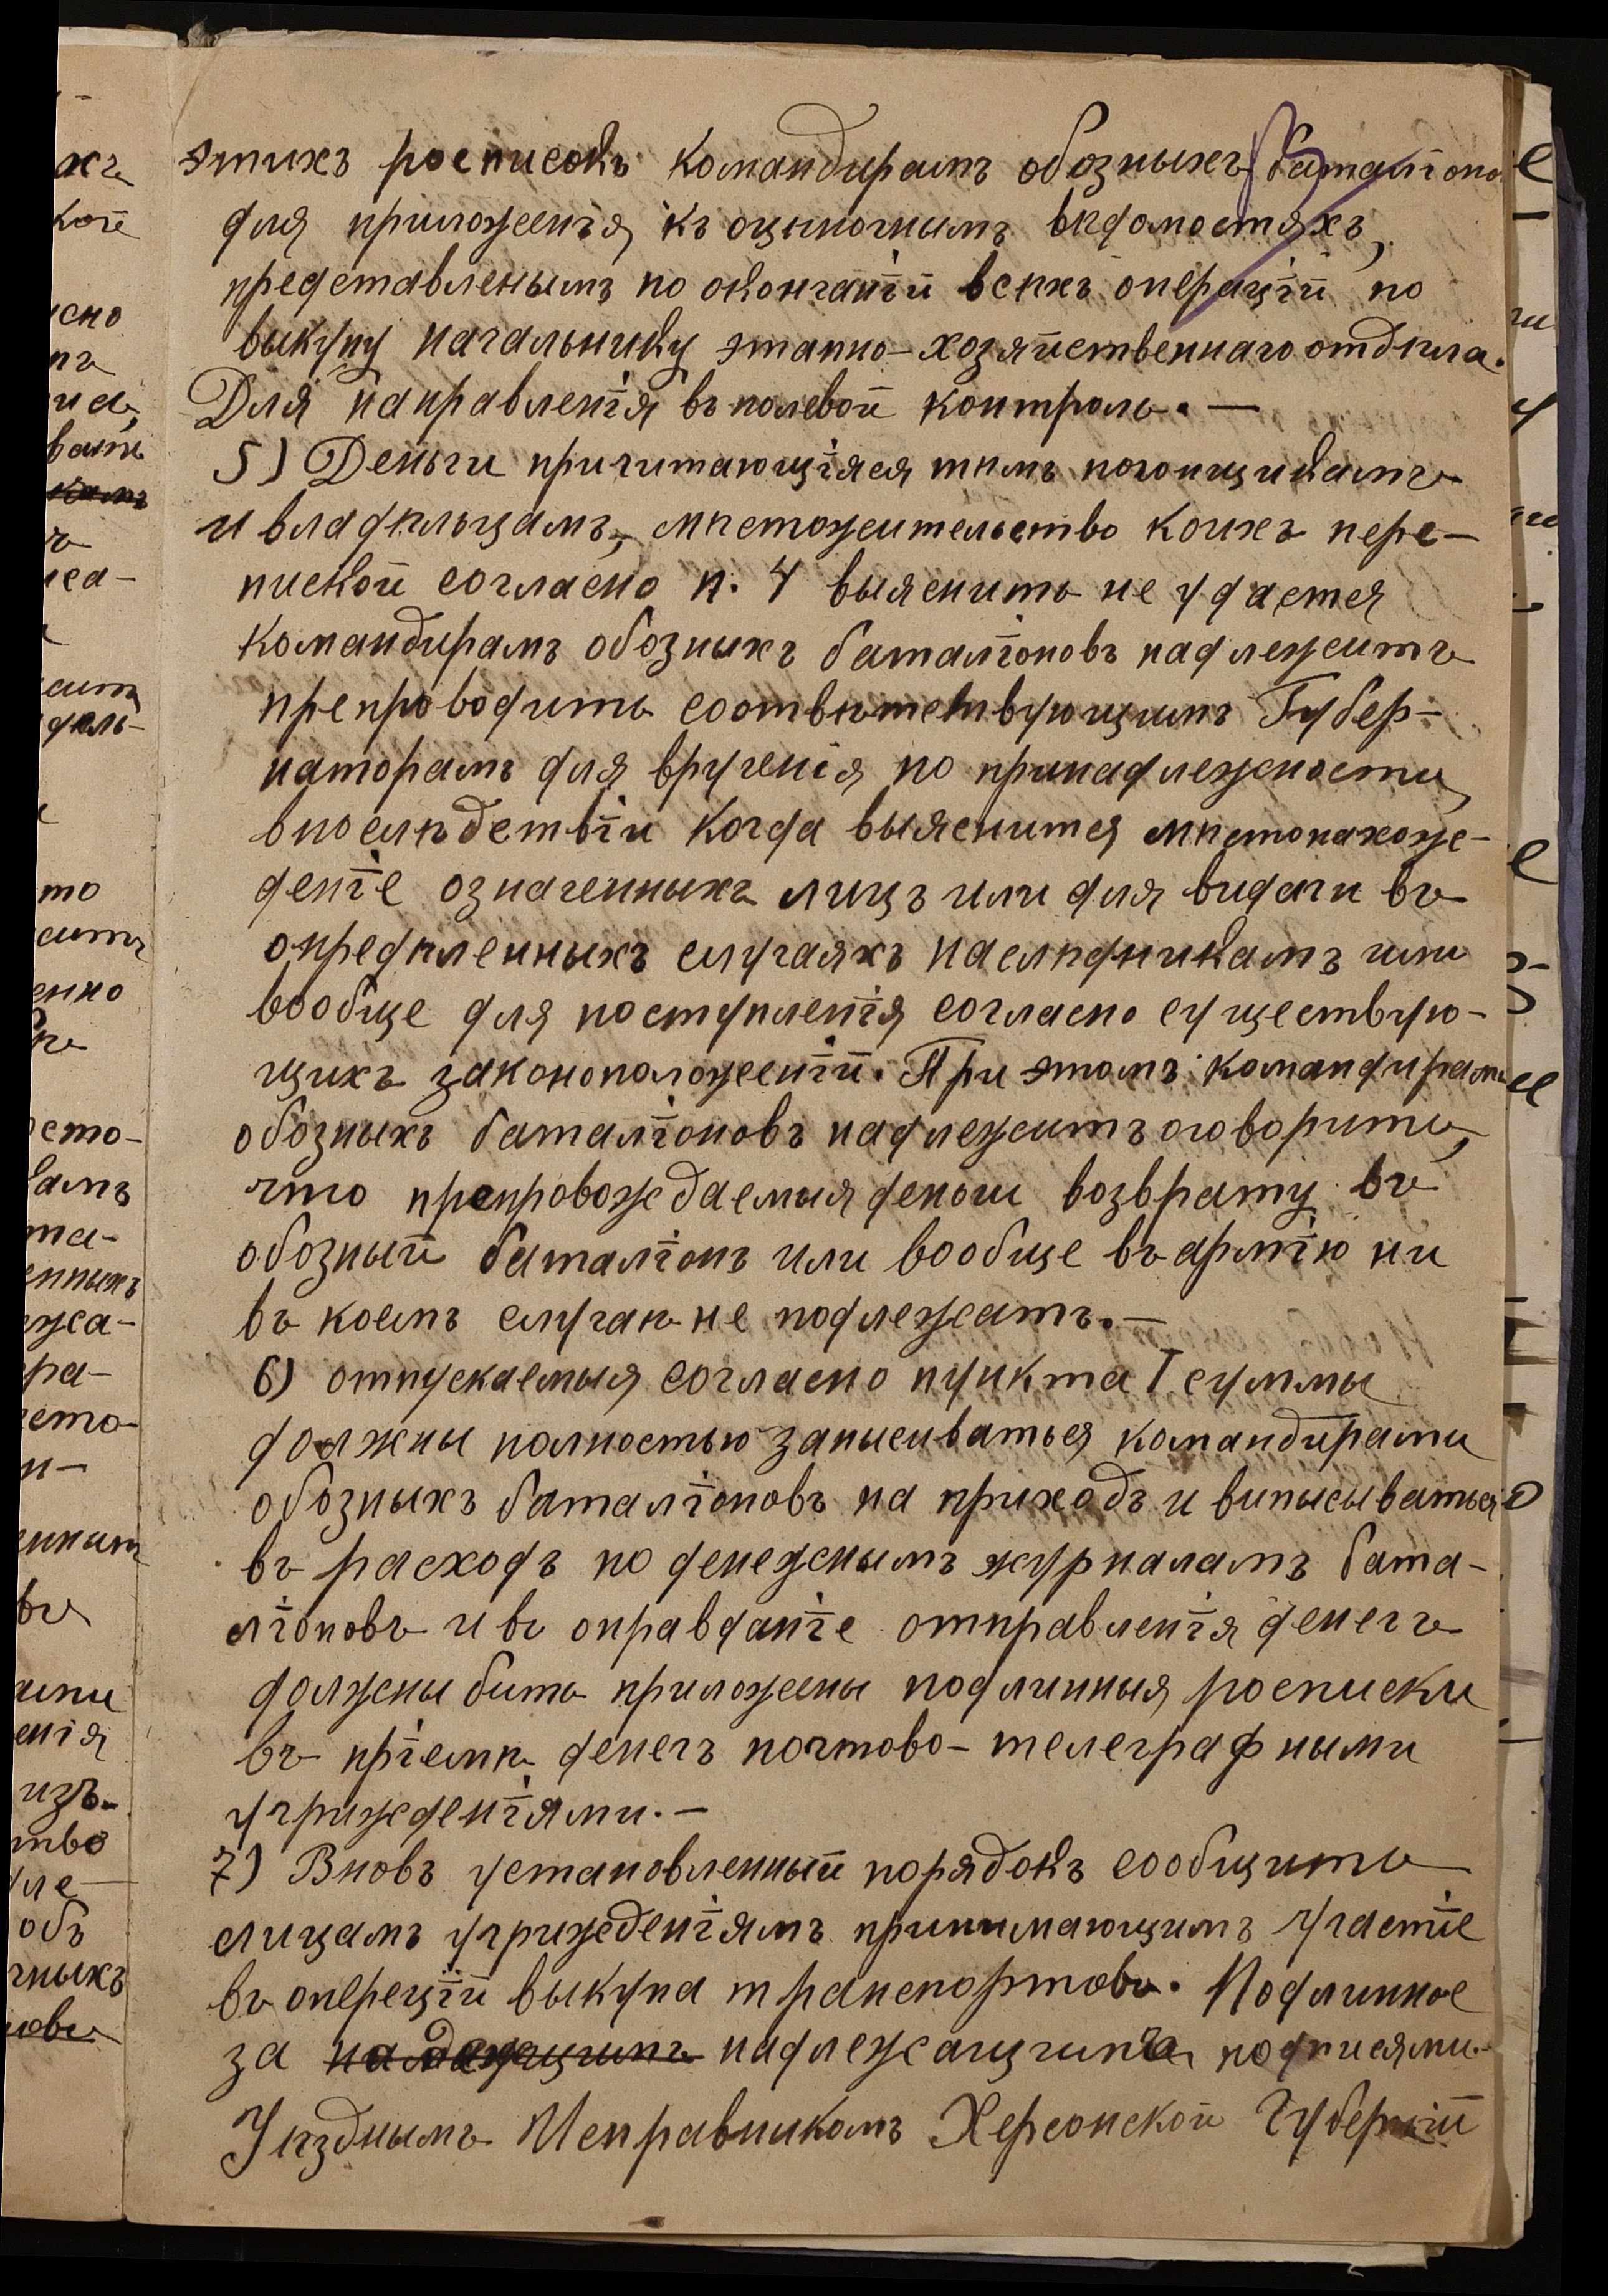 этихъ росписокъ командирамъ обозныхъ баталіоно
для приложенія къ оцѣночнымъ вѣдомостяхъ,
представленымъ по окончаніи всѣхъ операцій по
выкупу начальнику этапно-хозяйственнаго отдѣла.
Для направленія въ полевой контроль. —
5) Деньги причитающіяся тѣмъ погонщикамъ
и владѣльцамъ, мѣстожительство коихъ пере-
пиской согласно п. 4 выяснить не удается
командирамъ обозныхъ баталіоновъ надлежитъ
препроводить соотвѣтствующимъ Губер-
наторамъ для врученія по принадлежности,
впослѣдствіи когда выяснится мѣстонахож-
деніе означенныхъ лицъ или для видачи въ
опредѣленныхъ случаяхъ наслѣдникамъ или
вообще для поступленія согласно существую-
щихъ законоположеній. При этомъ командирамъ
обозныхъ баталіоновъ надлежитъ оговорить,
что препровождаемыя деньги возврату въ
обозный баталіонъ или вообще въ армію ни
въ коемъ случаѣ не подлежатъ. —
6) отпускаемыя согласно пункта I суммы
должны полностью записиваться командирами
обозныхъ баталіоновъ на приходъ и виписываться
въ расходъ по денежнымъ журналамъ бата-
ліоновъ и въ оправданіе отправленія денегъ
должны бить приложены подлинныя росписки
въ пріемѣ денегъ почтово-телеграфными
учрижденіями. —
7) Вновъ установленный порядокъ сообщить
лицамъ учрижденіямъ принимающимъ участіе
въ опереціи выкупа транспортовъ. Подлинное
за надлежащими подписями.
Уѣзднымъ Исправникомъ Херсонской Губерніи